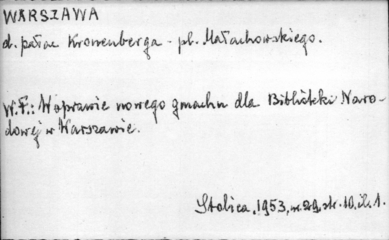 WARSZAWA
d. pałac Kronenberga - pl. Małachowskiego.
W.F.: W sprawie nowego gmachu dla Biblioteki Naro-
dowej w Warszawie.
Stolica, 1953, nr.29, str. 10, il. 1.